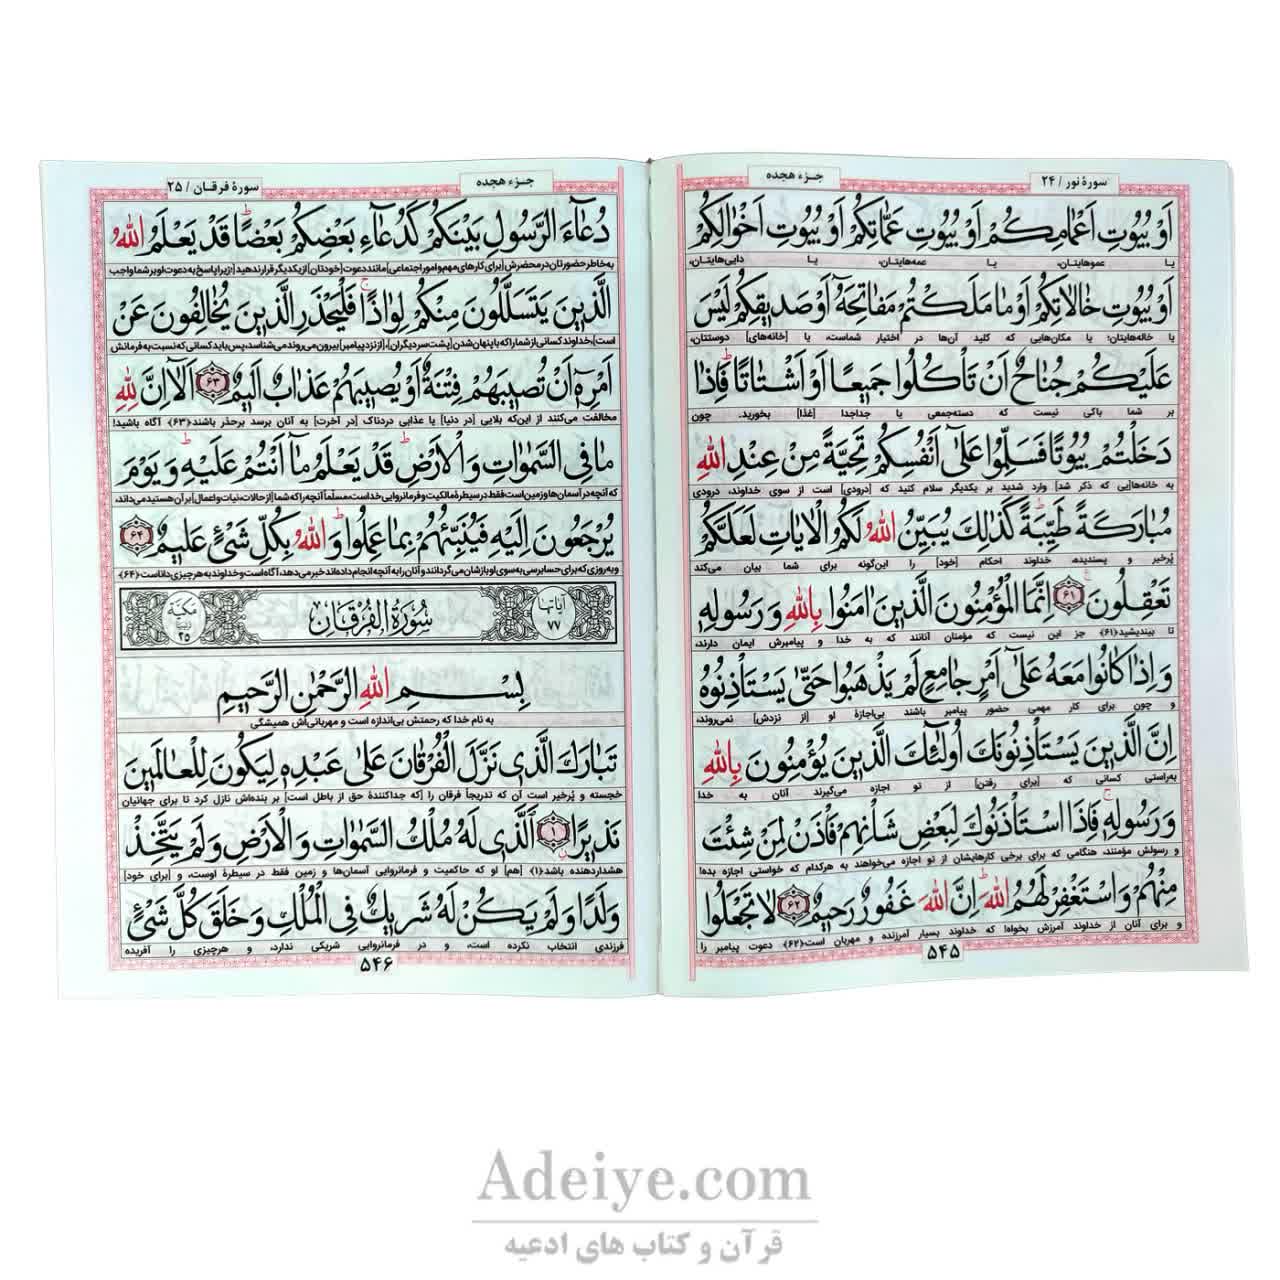 سورهٔ نور / ۲۴
جزء هجده
اَوْ بُيُوتِ اَعْمَامِكُمْ اَوْ بُيُوتِ عَمَّاتِكُمْ اَوْ بُيُوتِ اَخْوَالِكُمْ
یا عموهایتان، یا عمه‌هایتان، یا دایی‌هایتان،
اَوْ بُيُوتِ خَالَاتِكُمْ اَوْ مَا مَلَكْتُمْ مَفَاتِحَهُٓ اَوْ صَدِيقِكُمْ لَيْسَ
یا خاله‌هایتان؛ یا مکان‌هایی که کلید آن‌ها در اختیار شماست، یا [خانه‌های] دوستتان،
عَلَيْكُمْ جُنَاحٌ اَنْ تَأْكُلُوا جَمِيعًا اَوْ اَشْتَاتًا فَاِذَا
بر شما باکی نیست که دسته‌جمعی یا جداجدا [غذا] بخورید. چون
دَخَلْتُمْ بُيُوتًا فَسَلِّمُوا عَلٰٓى اَنْفُسِكُمْ تَحِيَّةً مِنْ عِنْدِ اللّٰهِ
به خانه‌ها[یی که ذکر شد] وارد شدید بر یکدیگر سلام کنید که [درودی] است از سوی خداوند، درودی
مُبَارَكَةً طَيِّبَةً كَذٰلِكَ يُبَيِّنُ اللّٰهُ لَكُمُ الْاٰيَاتِ لَعَلَّكُمْ
پُرخیر و پسندیده، خداوند احکام [خود] را این‌گونه برای شما بیان می‌کند
تَعْقِلُونَ ۶۱ اِنَّمَا الْمُؤْمِنُونَ الَّذِينَ اٰمَنُوا بِاللّٰهِ وَ رَسُولِهِ
تا بیندیشید﴿۶۱﴾ جز این نیست که مؤمنان آنانند که به خدا و پیامبرش ایمان دارند،
وَ اِذَا كَانُوا مَعَهُ عَلٰٓى اَمْرٍ جَامِعٍ لَمْ يَذْهَبُوا حَتّٰى يَسْتَأْذِنُوهُ
و چون برای کار مهمی حضور پیامبر باشند بی‌اجازهٔ او [از نزدش] نمی‌روند،
اِنَّ الَّذِينَ يَسْتَأْذِنُونَكَ اُولٰٓئِكَ الَّذِينَ يُؤْمِنُونَ بِاللّٰهِ
به‌راستی کسانی که [برای رفتن] از تو اجازه می‌گیرند آنان به خدا
وَ رَسُولِهِ فَاِذَا اسْتَأْذَنُوكَ لِبَعْضِ شَأْنِهِمْ فَأْذَنْ لِمَنْ شِئْتَ
و رسولش مؤمنند، هنگامی که برای برخی کارهایشان از تو اجازه می‌خواهند به هرکدام که خواستی اجازه بده!
مِنْهُمْ وَ اسْتَغْفِرْ لَهُمُ اللّٰهَ اِنَّ اللّٰهَ غَفُورٌ رَحِيمٌ ۶۲ لَا تَجْعَلُوا
و برای آنان از خداوند آمرزش بخواه! که خداوند بسیار آمرزنده و مهربان است﴿۶۲﴾ دعوت پیامبر را
۵۴۵
جزء هجده
سورهٔ فرقان / ۲۵
دُعَٓاءَ الرَّسُولِ بَيْنَكُمْ كَدُعَٓاءِ بَعْضِكُمْ بَعْضًا قَدْ يَعْلَمُ اللّٰهُ
به خاطر حضورتان در محضرش [برای کارهای مهم و امور اجتماعی] مانند دعوت [خودتان] از یکدیگر قرار ندهید [زیرا پاسخ به دعوت او بر شما واجب
الَّذِينَ يَتَسَلَّلُونَ مِنْكُمْ لِوَاذًا فَلْيَحْذَرِ الَّذِينَ يُخَالِفُونَ عَنْ
است]، خداوند کسانی از شما را که با پنهان شدن [پشت سر دیگران]، [از نزد پیامبر] بیرون می‌روند می‌شناسد، پس باید کسانی که نسبت به فرمانش
اَمْرِهِٓ اَنْ تُصِيبَهُمْ فِتْنَةٌ اَوْ يُصِيبَهُمْ عَذَابٌ اَلِيمٌ ۶۳ اَلَٓا اِنَّ لِلّٰهِ
مخالفت می‌کنند از این‌که بلایی [در دنیا] یا عذابی دردناک [در آخرت] به آنان برسد برحذر باشند﴿۶۳﴾ آگاه باشید!
مَا فِى السَّمٰوَاتِ وَ الْاَرْضِ قَدْ يَعْلَمُ مَٓا اَنْتُمْ عَلَيْهِ وَ يَوْمَ
که آنچه در آسمان‌ها و زمین است فقط در سیطرهٔ مالکیت و فرمانروایی خداست مسلّماً آنچه را که شما [از حالات، نیات و اعمال] بر آن هستید می‌داند،
يُرْجَعُونَ اِلَيْهِ فَيُنَبِّئُهُمْ بِمَا عَمِلُوا وَ اللّٰهُ بِكُلِّ شَىْءٍ عَلِيمٌ ۶۴
و به روزی که برای حسابرسی به سوی او بازشان می‌گردانند و آنان را به آنچه انجام داده‌اند خبر می‌دهد، آگاه است و خداوند به هر چیزی داناست﴿۶۴﴾
آیاتها ۷۷ سُورَةُ الْفُرْقَانِ مكيّة ۲۵
بِسْمِ اللّٰهِ الرَّحْمٰنِ الرَّحِيمِ
به نام خدا که رحمتش بی‌اندازه است و مهربانی‌اش همیشگی
تَبَارَكَ الَّذِى نَزَّلَ الْفُرْقَانَ عَلٰى عَبْدِهِ لِيَكُونَ لِلْعَالَمِينَ
خجسته و پُرخیر است آن که تدریجاً فرقان را [که جداکنندهٔ حق از باطل است] بر بنده‌اش نازل کرد تا برای جهانیان
نَذِيرًا ۱ اَلَّذِى لَهُ مُلْكُ السَّمٰوَاتِ وَ الْاَرْضِ وَ لَمْ يَتَّخِذْ
هشداردهنده باشد﴿۱﴾ [هم] او که حاکمیت و فرمانروایی آسمان‌ها و زمین فقط در سیطرهٔ اوست، و [برای خود]
وَلَدًا وَ لَمْ يَكُنْ لَهُ شَرِيكٌ فِى الْمُلْكِ وَ خَلَقَ كُلَّ شَىْءٍ
فرزندی انتخاب نکرده است، و در فرمانروایی شریکی ندارد، و هرچیزی را آفریده
۵۴۶
Adeiye.com
قرآن و کتاب های ادعیه